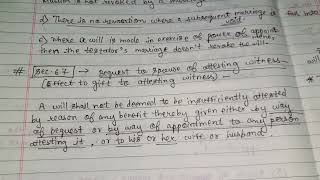 Muslim is not revoked by a
d) There is no revocation where a subsequent marriage is
void.
e) Where a will is made in exercise of power of appoint
then the testator's marriage doesn't revoke the will.
# Sec 67 → request to spouse of attesting witness
(Effect to gift to attesting witness)
A will shall not be deemed to be insufficiently attested
by reason of any benefit thereby given either by way
of bequest or by way of appointment to any person
attesting it, or to his or her wife or husband.